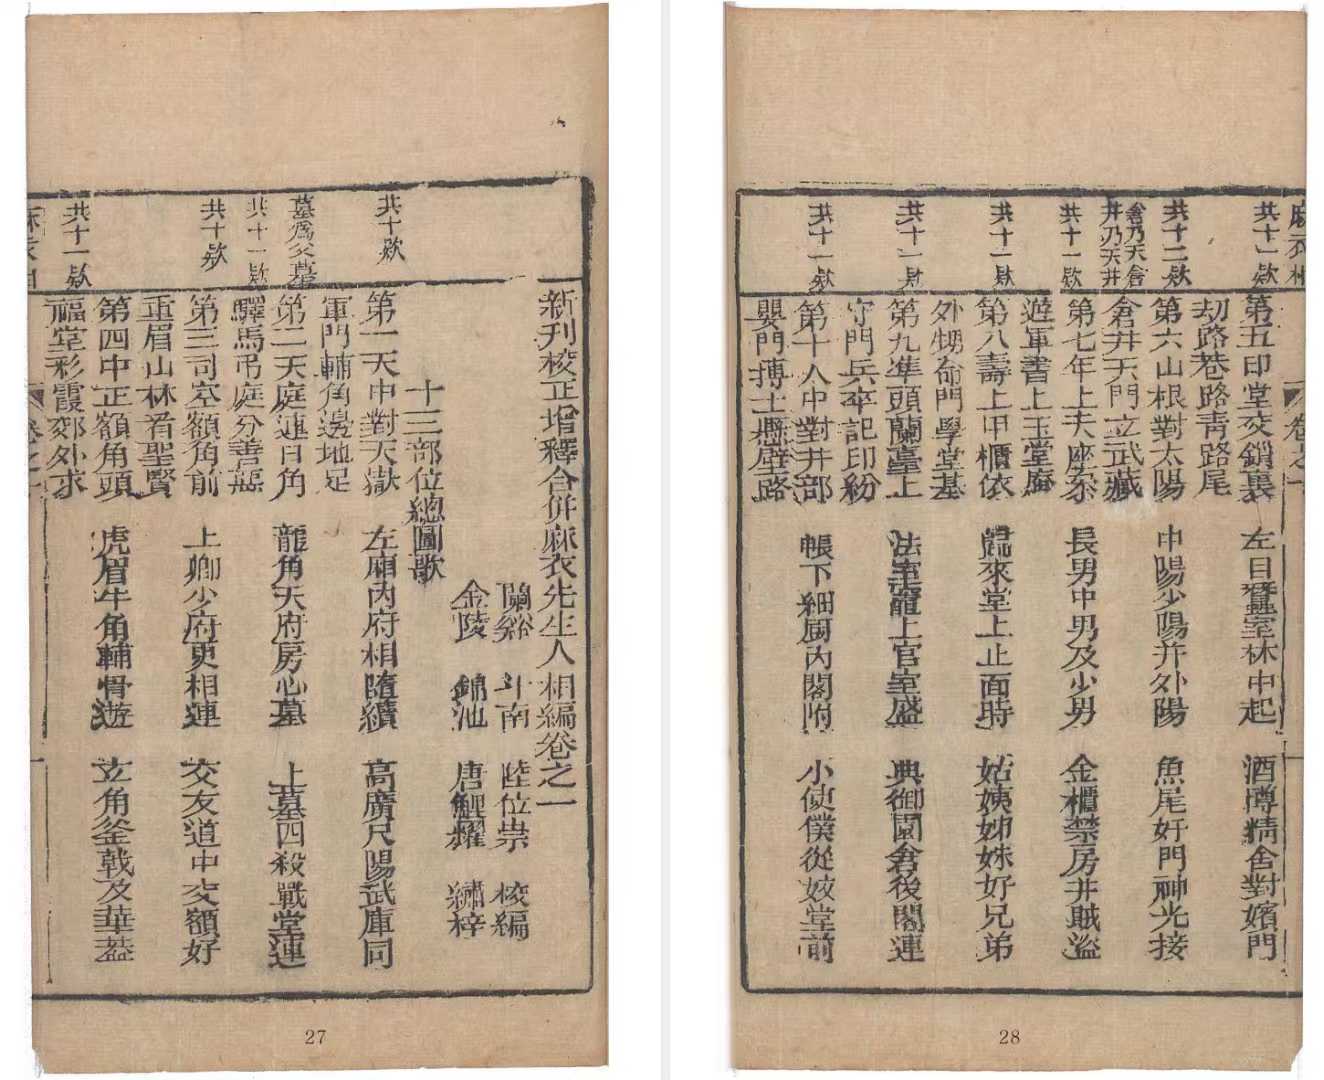 新刊校正增釋合併麻衣先生人相編卷之一
蘭谿 斗南 陸位崇 校編
金陵 錦池 唐鯉耀 繡梓
十三部位總圖歌
共十欵
第一天中對天嶽 左廂內府相隨續 高廣尺陽武庫同
軍門輔角邊地足
墓爲父墓
第二天庭連日角 龍角天府房心墓 上墓四殺戰堂連
共十一欵
驛馬弔庭分善惡
共十欵
第三司空額角前 上卿少府更相連 交友道中交額好
重眉山林看聖賢
共十一欵
第四中正額角頭 虎眉牛角輔骨遊 玄角釜戟及華蓋
福堂彩霞郊外求
卷之一
一
27
麻衣相
卷之一
共十一欵
第五印堂交鎖裏 左目蠶室林中起 酒罇精舍對嬪門
刧路巷路靑路尾
共十二欵
第六山根對太陽 中陽少陽幷外陽 魚尾奸門神光接
倉乃天倉
井乃天井
倉井天門立武藏
共十一欵
第七年上夫座叅 長男中男及少男 金櫃禁房井賊盜
遊軍書上玉堂庵
共十一欵
第八壽上甲櫃依 歸來堂上止面時 姑姨姊妹好兄弟
外甥命門學堂基
共十一欵
第九準頭蘭臺上 法室竈上宮室盛 典御園倉後閣連
守門兵卒記印紛
共十一欵
第十人中對井部 帳下細厨內閣附 小使僕從妓堂前
嬰門博士懸壁路
28